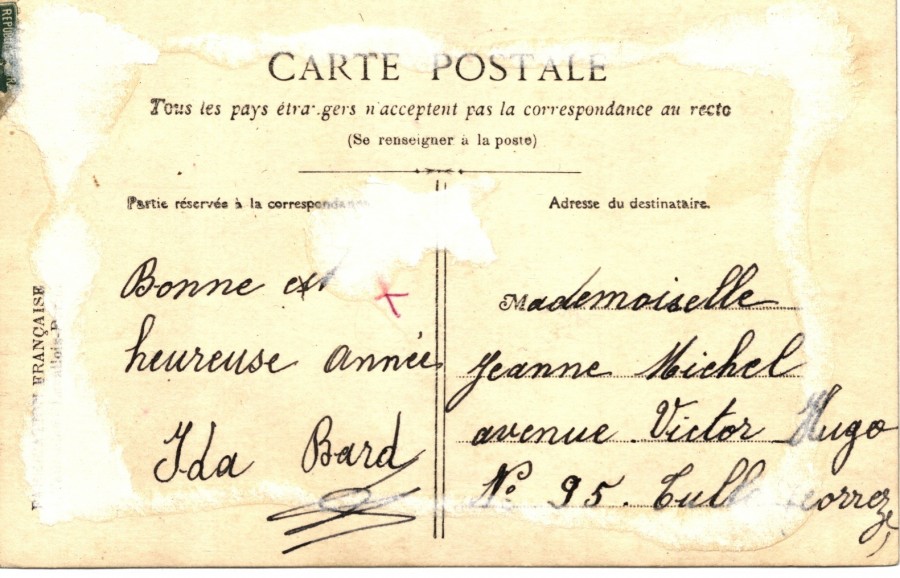 CARTE POSTALE
Tous les pays étrangers n'acceptent pas la correspondance au recto
(Se renseigner à la poste)
Partie réservée à la correspondance
Adresse du destinataire.
Bonne et
heureuse année
Ida Bard
Mademoiselle
Jeanne Michel
avenue Victor Hugo
No 95. Tulle Correze
FRANÇAISE